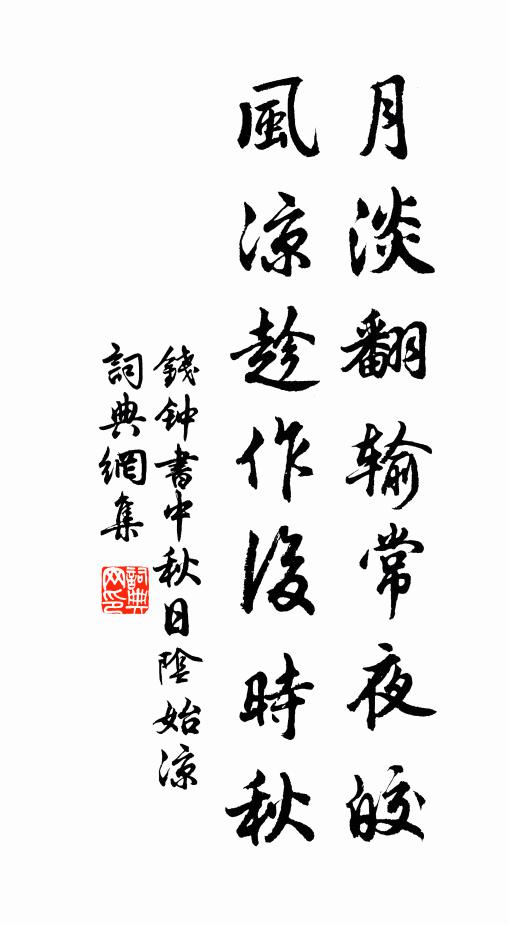 月淡翻输常夜皎
風涼趁作後時秋
錢钟書中秋日陰始涼
詞典網集
詞典
网印